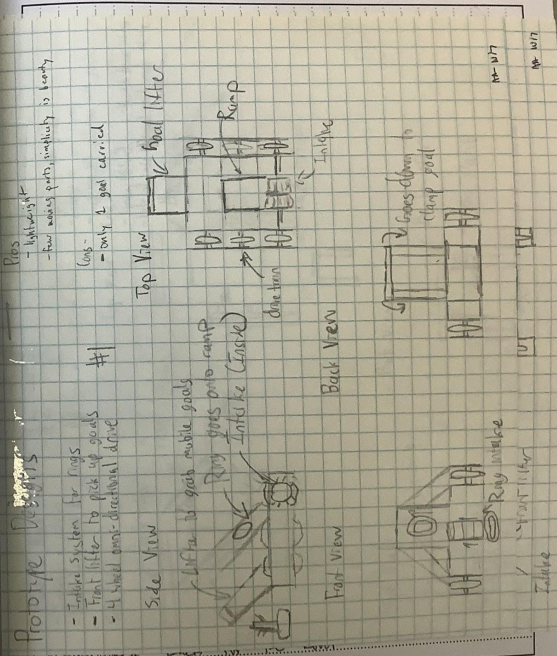 Prototype Designs
- Intake system for rings
- Front lifter to pick up goals
- 4 wheel omni-directional drive
#1
Pros -
- lightweight
- few moving parts, simplicity is beauty
Cons -
- only 1 goal carried
Side View
Lifts to grab mobile goals
Ring goes onto ramp
Intake (Inside)
Top View
Goal lifter
Ramp
Intake
drive train
Front View
Ring intake
Back View
Goes down to
clamp goal
Front lifter
Intake